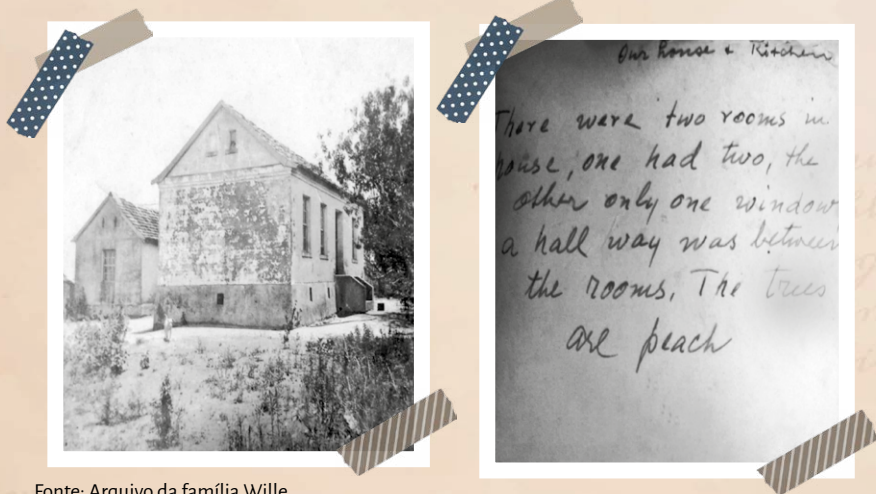 Our house + Kitchen
There were two rooms in
house, one had two, the
other only one window
a hall way was between
the rooms. The trees
are peach
Fonte: Arquivo da família Wille